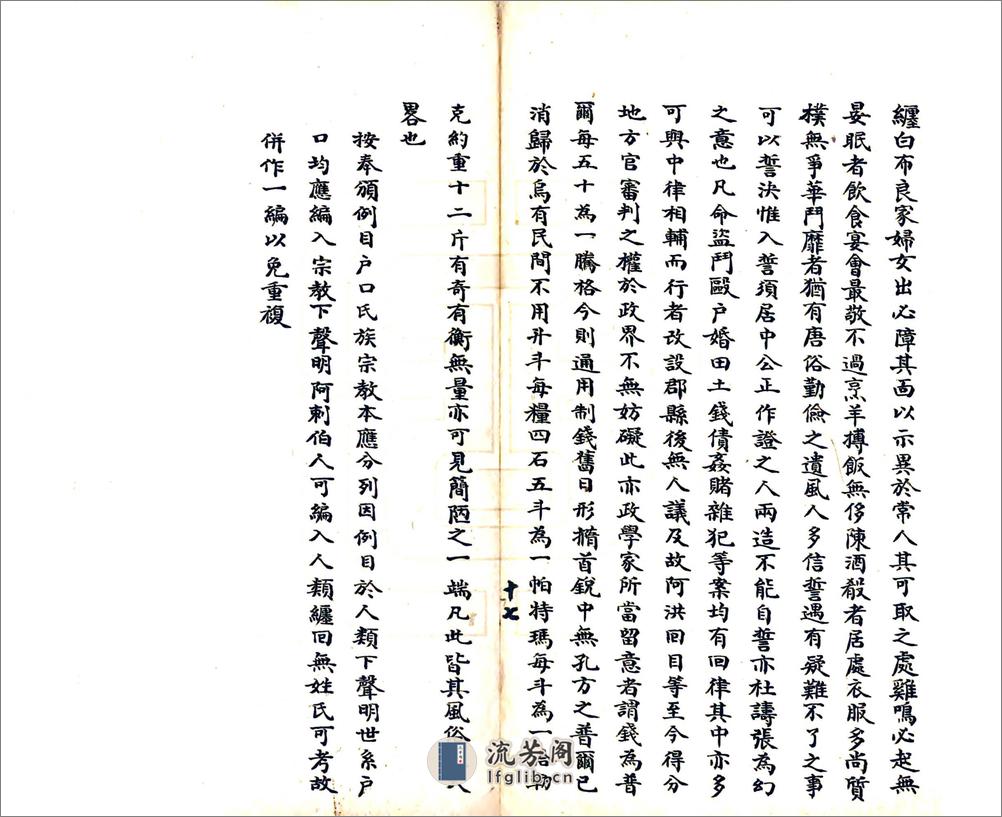 纏白布良家婦女出必障其面以示異於常人其可取之處雞鳴必起無
晏眠者飲食宴會最敬不過烹羊摶飯無侈陳酒殽者居處衣服多尚質
樸無爭華鬥靡者猶有唐俗勤儉之遺風人多信誓遇有疑難不了之事
可以誓決惟入誓須居中公正作證之人兩造不能自誓亦杜譸張為幻
之意也凡命盜鬥毆户婚田土錢債姦賭雜犯等案均有回律其中亦多
可與中律相輔而行者改設郡縣後無人議及故阿洪回目等至今得分
地方官審判之權於政界不無妨礙此亦政學家所當留意者謂錢為普
爾每五十為一騰格今則通用制錢舊日形橢首銳中無孔方之普爾已
消歸於烏有民間不用升斗每糧四石五斗為一帕特瑪每斗為一
十七
克約重十二斤有奇有衡無量亦可見簡陋之一端凡此皆其風俗
畧也
按奉頒例目户口氏族宗教本應分列因例目於人類下聲明世系户
口均應編入宗教下聲明阿剌伯人可編入人類纏回無姓氏可考故
併作一編以免重複
流芳阁
lfglib.cn